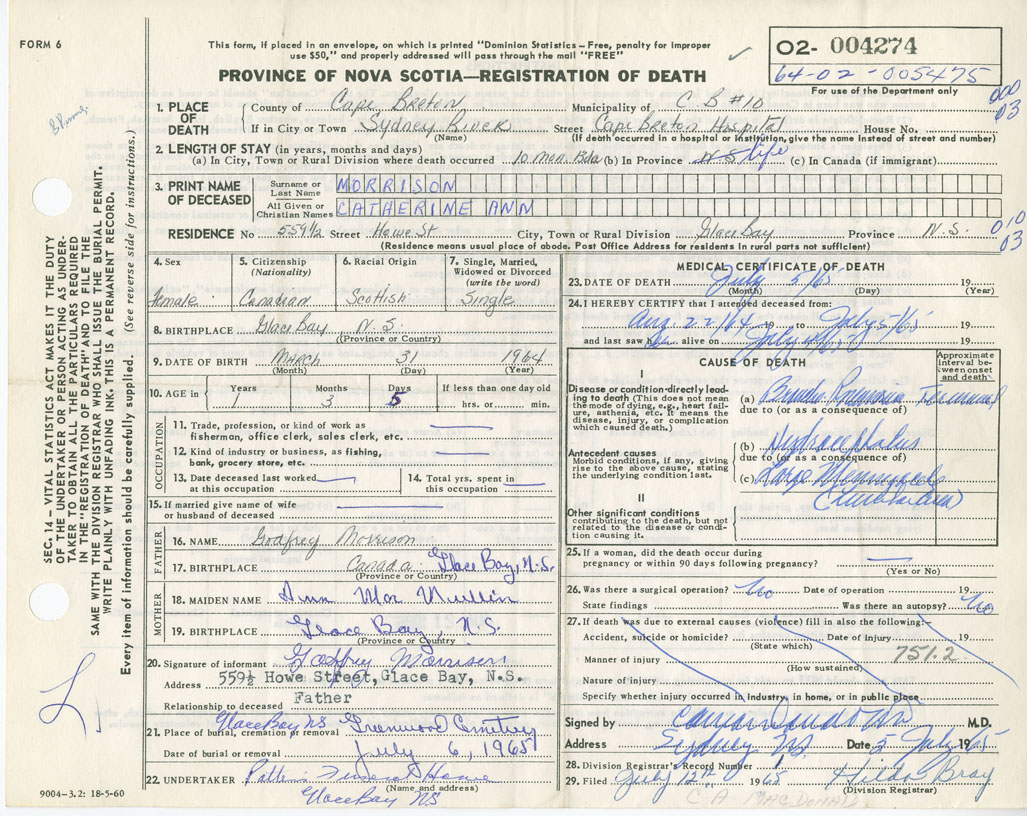 FORM 6
This form, if placed in an envelope, on which is printed "Dominion Statistics – Free, penalty for improper
use $50," and properly addressed will pass through the mail "FREE"
02- 004274
64-02-005475
For use of the Department only
PROVINCE OF NOVA SCOTIA—REGISTRATION OF DEATH
000
03
1. PLACE OF DEATH
County of Cape Breton Municipality of C.B #10
If in City or Town Sydney River Street Cape Breton Hospital House No.
(Name) (If death occurred in a hospital or institution, give the name instead of street and number)
2. LENGTH OF STAY (in years, months and days)
(a) In City, Town or Rural Division where death occurred 10 mon. (b) In Province N S life (c) In Canada (if immigrant)
3. PRINT NAME OF DECEASED
Surname or Last Name MORRISON
All Given or Christian Names CATHERINE ANN
RESIDENCE No 559½ Street Howe St City, Town or Rural Division Glace Bay Province N.S.
010
03
(Residence means usual place of abode. Post Office Address for residents in rural parts not sufficient)
4. Sex
Female
5. Citizenship
(Nationality)
Canadian
6. Racial Origin
Scottish
7. Single, Married,
Widowed or Divorced
(write the word)
Single
8. BIRTHPLACE Glace Bay N.S.
(Province or Country)
9. DATE OF BIRTH March 31 1964
(Month) (Day) (Year)
10. AGE in
Years Months Days If less than one day old
1 3 5 hrs. or min.
OCCUPATION
11. Trade, profession, or kind of work as
fisherman, office clerk, sales clerk, etc.
12. Kind of industry or business, as fishing,
bank, grocery store, etc.
13. Date deceased last worked
at this occupation
14. Total yrs. spent in
this occupation
15. If married give name of wife
or husband of deceased
FATHER
16. NAME Godfrey Morrison
17. BIRTHPLACE Canada Glace Bay, N.S.
(Province or Country)
MOTHER
18. MAIDEN NAME Ann Mac Mullin
19. BIRTHPLACE Glace Bay, N.S.
(Province or Country)
20. Signature of informant Godfrey Morrison
Address 559½ Howe Street, Glace Bay, N.S.
Relationship to deceased Father
Glace Bay NS Greenwood Cemetery
21. Place of burial, cremation or removal
Date of burial or removal July 6, 1965
22. UNDERTAKER Funeral Home
(Name and address)
Glace Bay NS
9004-3.2: 18-5-60
MEDICAL CERTIFICATE OF DEATH
23. DATE OF DEATH July 5/65
(Month) (Day) (Year)
24. I HEREBY CERTIFY that I attended deceased from:
Aug. 22/64 19 to July 5/65 19
and last saw her alive on July 4/65 19
CAUSE OF DEATH
Approximate
interval between onset
and death
I
Disease or condition directly leading
to death (This does not mean
the mode of dying, e.g., heart failure,
asthenia, etc. It means the
disease, injury, or complication
which caused death.)
(a) Broncho Pneumonia Terminal
due to (or as a consequence of)
Antecedent causes
Morbid conditions, if any, giving
rise to the above cause, stating
the underlying condition last.
(b) Hydrocephalus
due to (or as a consequence of)
(c) Large
II
Other significant conditions
contributing to the death, but not
related to the disease or condition
causing it.
25. If a woman, did the death occur during
pregnancy or within 90 days following pregnancy?
(Yes or No)
26. Was there a surgical operation? No Date of operation 19
State findings Was there an autopsy? No
27. If death was due to external causes (violence) fill in also the following:–
Accident, suicide or homicide? Date of injury 19
(State which)
Manner of injury 751.2
(How sustained)
Nature of injury
Specify whether injury occurred in industry, in home, or in public place
Signed by M.D.
Address Sydney NS Date 5 July 1965
28. Division Registrar's Record Number 1
29. Filed July 12th 1965 Hilda Bray
(Division Registrar)
C A MACDONALD
SEC. 14 – VITAL STATISTICS ACT MAKES IT THE DUTY
OF THE UNDERTAKER OR PERSON ACTING AS UNDERTAKER
TO OBTAIN ALL THE PARTICULARS REQUIRED
IN THE "REGISTRATION OF DEATH" AND TO FILE THE
SAME WITH THE DIVISION REGISTRAR WHO SHALL ISSUE THE BURIAL PERMIT.
WRITE PLAINLY WITH UNFADING INK. THIS IS A PERMANENT RECORD.
Every item of information should be carefully supplied. (See reverse side for instructions.)